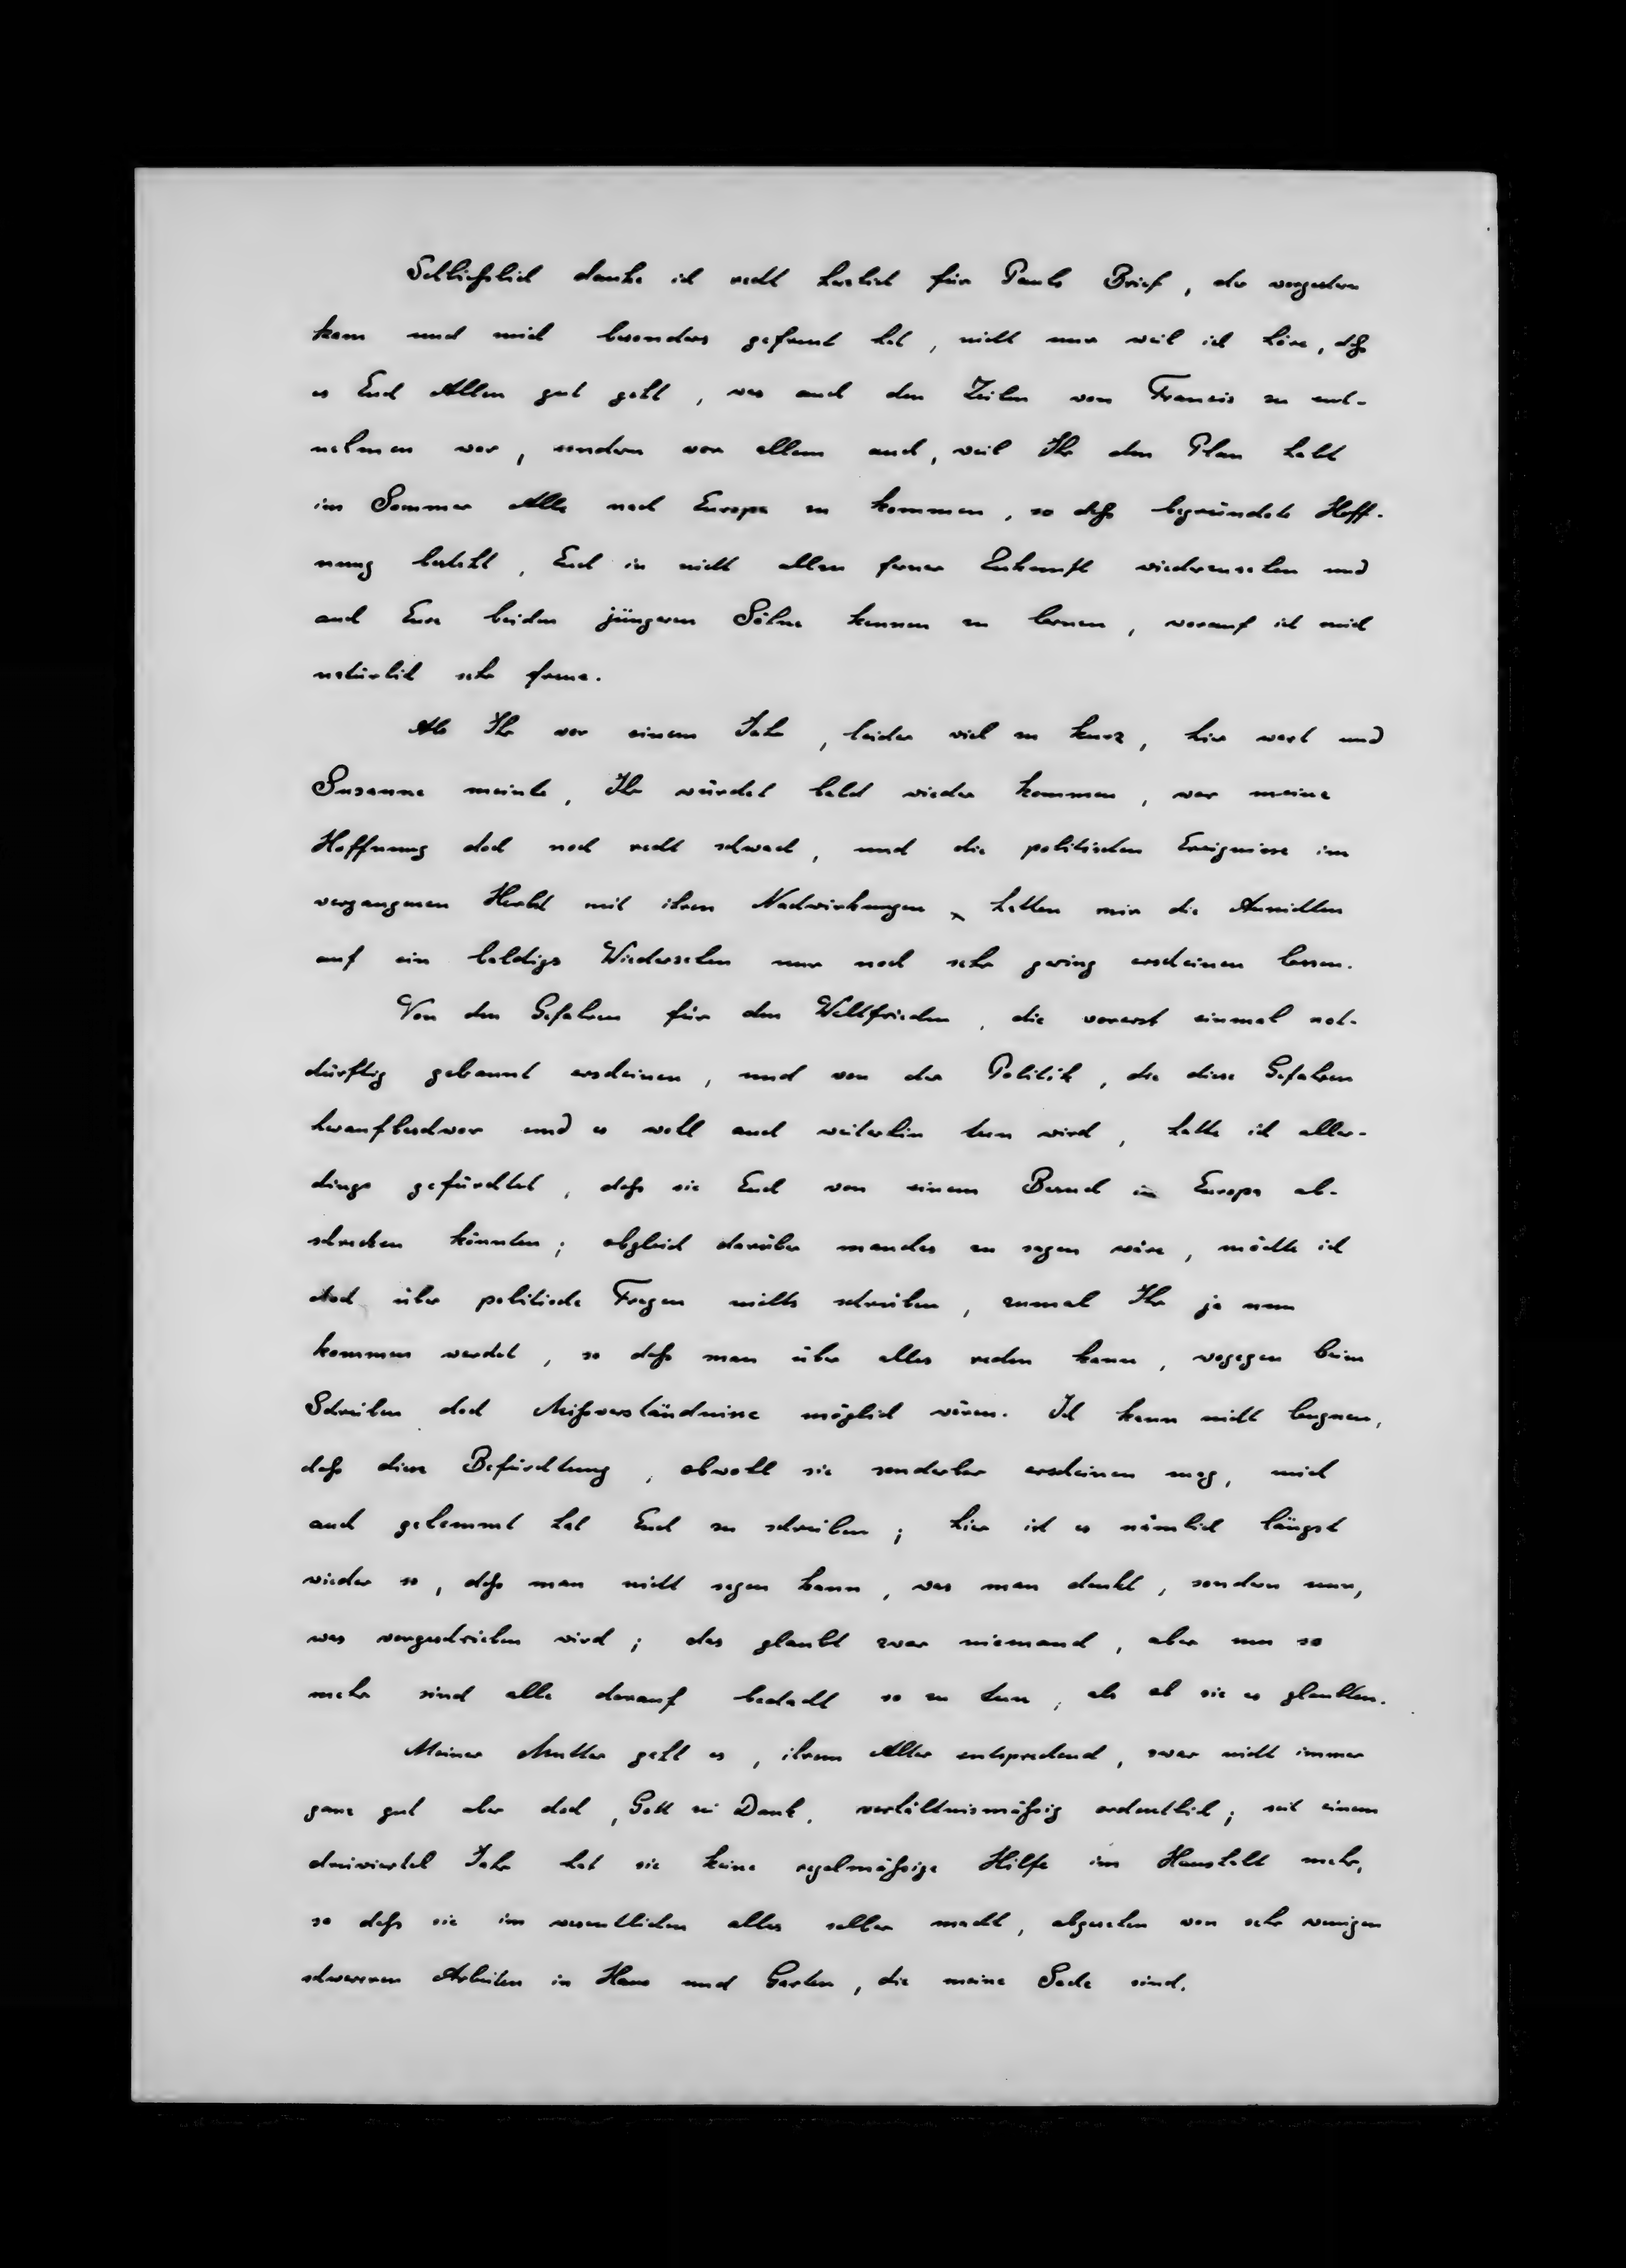 Schließlich danke ich recht herzlich für Pauls Brief, der vorgestern
kam und mich besonders gefreut hat, nicht nur weil ich höre, daß
es Euch Allen gut geht, was auch den Zeilen von Francis zu ent-
nehmen war, sondern vor allem auch, weil Ihr den Plan habt
im Sommer Alle nach Europa zu kommen, so daß begründete Hoff-
nung besteht, Euch in nicht allzu ferner Zukunft wiederzusehen und
auch Eure beiden jüngeren Söhne kennen zu lernen, worauf ich mich
natürlich sehr freue.
Als Ihr vor einem Jahr, leider viel zu kurz, hier wart und
Susanne meinte, Ihr würdet bald wieder kommen, war meine
Hoffnung doch noch recht schwach, und die politischen Ereignisse im
vergangenen Herbst mit ihren Nachwirkungen hatten mir die Aussichten
auf ein baldiges Wiedersehen nur noch sehr gering erscheinen lassen.
Von den Gefahren für den Weltfrieden, die vorerst einmal not-
dürftig gebannt erscheinen, und von der Politik, die diese Gefahren
heraufbeschwor und es wohl auch weiterhin tun wird, hatte ich aller-
dings gefürchtet, daß sie Euch von einem Besuch in Europa ab-
schrecken könnten; obgleich darüber manches zu sagen wäre, möchte ich
doch über politische Fragen nichts schreiben, zumal Ihr ja nun
kommen werdet, so daß man über alles reden kann, wogegen beim
Schreiben doch Mißverständnisse möglich wären. Ich kann nicht leugnen,
daß diese Befürchtung, obwohl sie sonderbar erscheinen mag, mich
auch gehemmt hat Euch zu schreiben; hier ist es nämlich längst
wieder so, daß man nicht sagen kann, was man denkt, sondern nur,
was vorgeschrieben wird; das glaubt zwar niemand, aber um so
mehr sind alle darauf bedacht so zu tun, als ob sie es glaubten.
Meiner Mutter geht es, ihrem Alter entsprechend, zwar nicht immer
ganz gut aber doch, Gott sei Dank, verhältnismäßig ordentlich; seit einem
dreiviertel Jahr hat sie keine regelmäßige Hilfe im Haushalt mehr,
so daß sie im wesentlichen alles selber macht, abgesehen von sehr wenigen
schweren Arbeiten in Haus und Garten, die meine Sache sind.